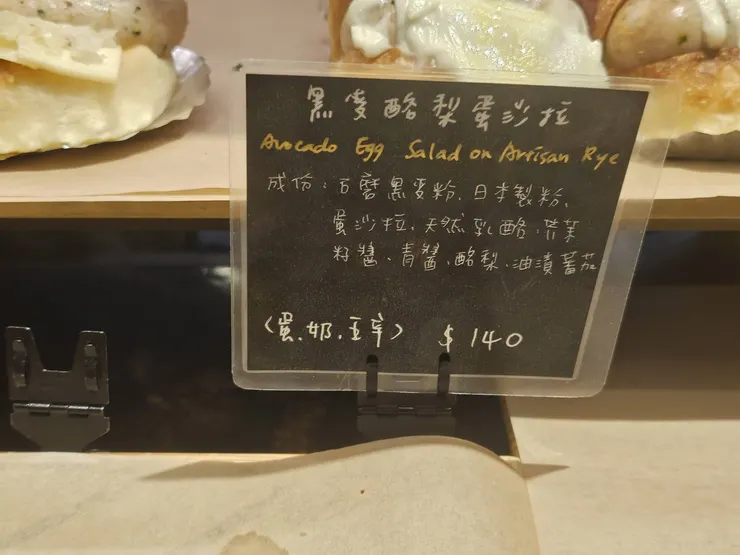 黑麥酪梨蛋沙拉
Avocado Egg Salad on Artisan Rye
成份:石磨黑麥粉、日本製粉、
蛋沙拉、天然乳酪、芥茉
籽醬、青醬、酪梨、油漬蕃茄
(蛋.奶.五辛) $140